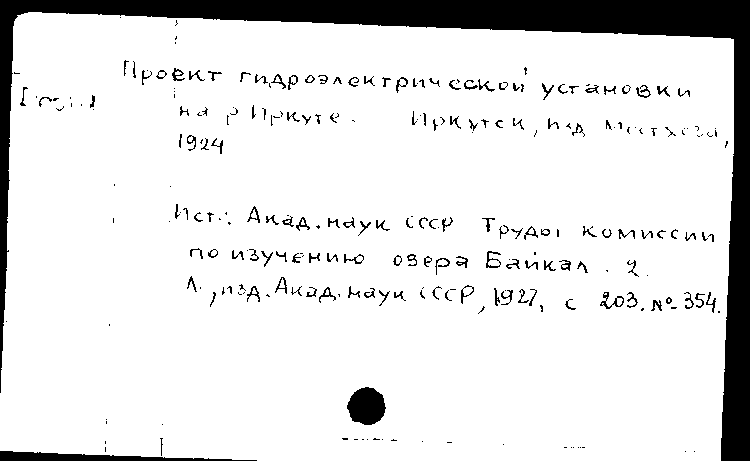 Проект гидроэлектрической установки
на р Иркуте. Иркутск, изд Местхоза,
1924
Ист.: Акад. наук СССР Труды комиссии
по изучению озера Байкал. 2.
Л., изд. Акад. наук СССР, 1927, с 203. № 354.